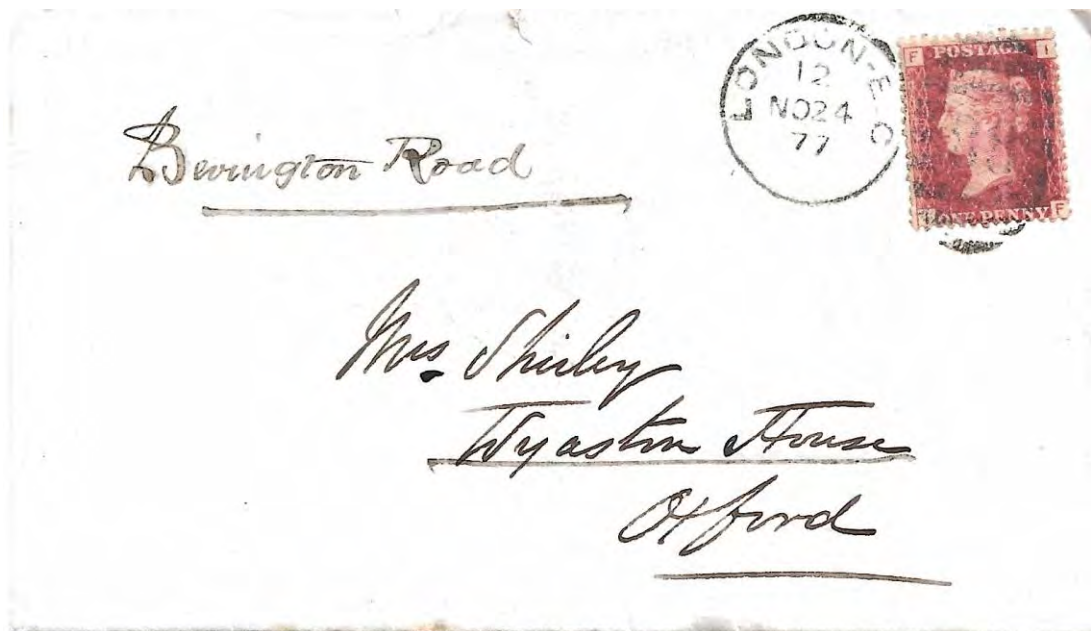 Bevington Road
LONDON-E·C
12
NO24
77
F POSTAGE I
ONE PENNY F
Mrs. Shirley
Wyaston House
Oxford